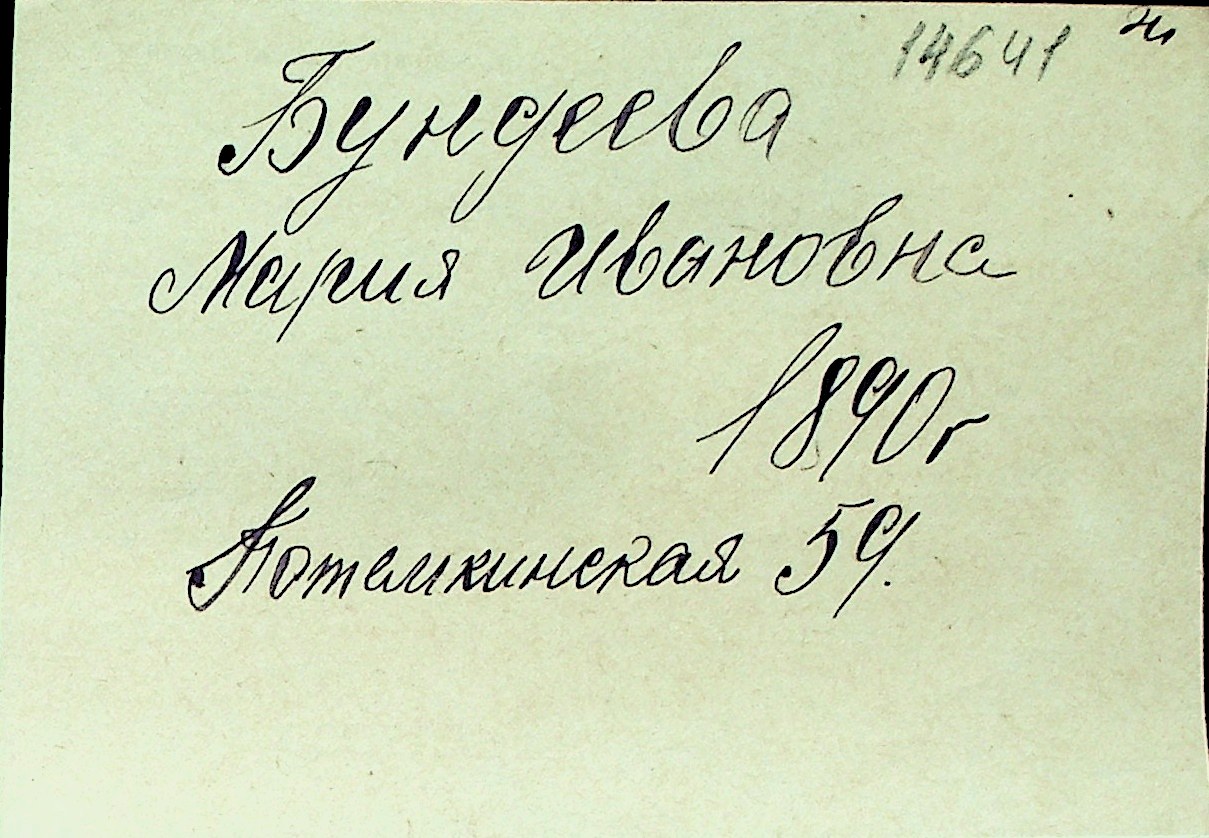 14641
Бундеева
Мария Ивановна
1890г
Потемкинская 59.